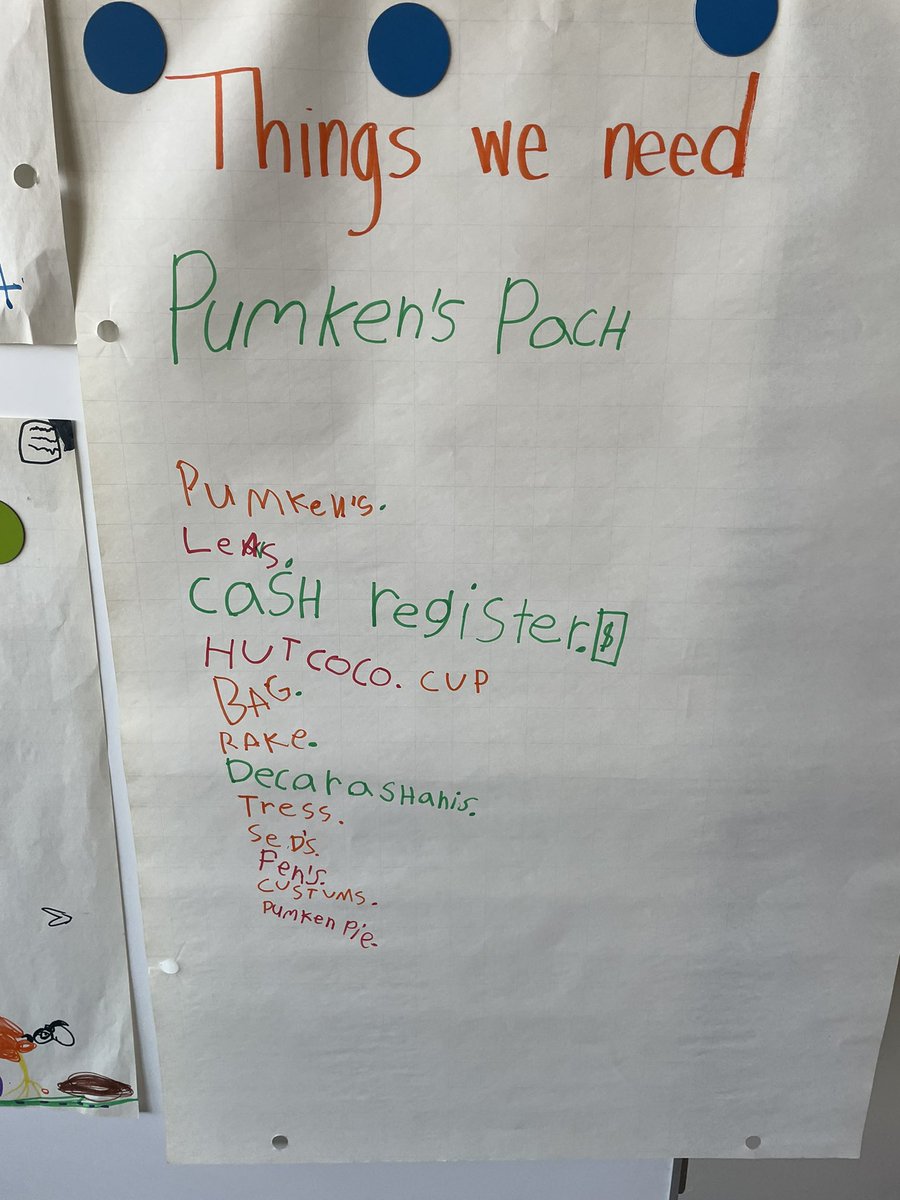 Things we need
Pumken's Pach
Pumken's.
Cash register. $
HUT COCO. CUP
BAG.
RAKe.
Decarashanis.
Tress.
SeD's.
Pen's.
CUSTUMS.
PUMKen Pie.